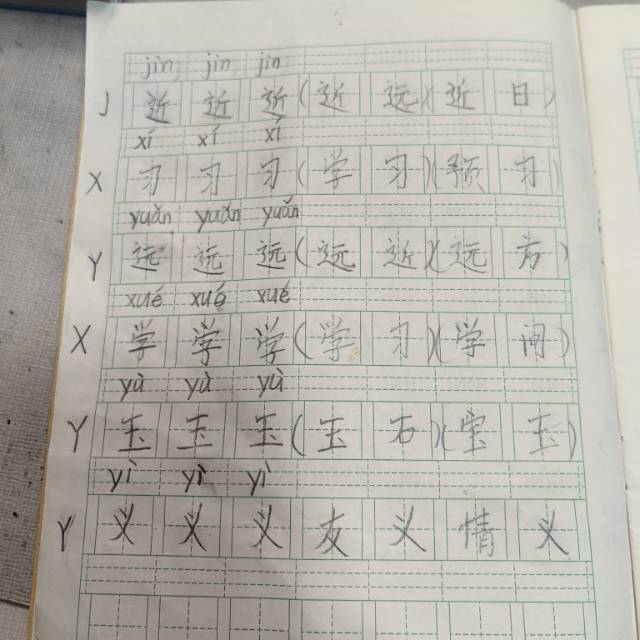 jìn jìn jìn
J 近 近 近 ( 近 远 ) ( 近 日 )
xí xí xí
X 习 习 习 ( 学 习 ) ( 预 习 )
yuǎn yuǎn yuǎn
Y 远 远 远 ( 远 近 ) ( 远 方 )
xué xué xué
X 学 学 学 ( 学 习 ) ( 学 问 )
yù yù yù
Y 玉 玉 玉 ( 玉 石 ) ( 宝 玉 )
yì yì yì
Y 义 义 义 友 义 情 义